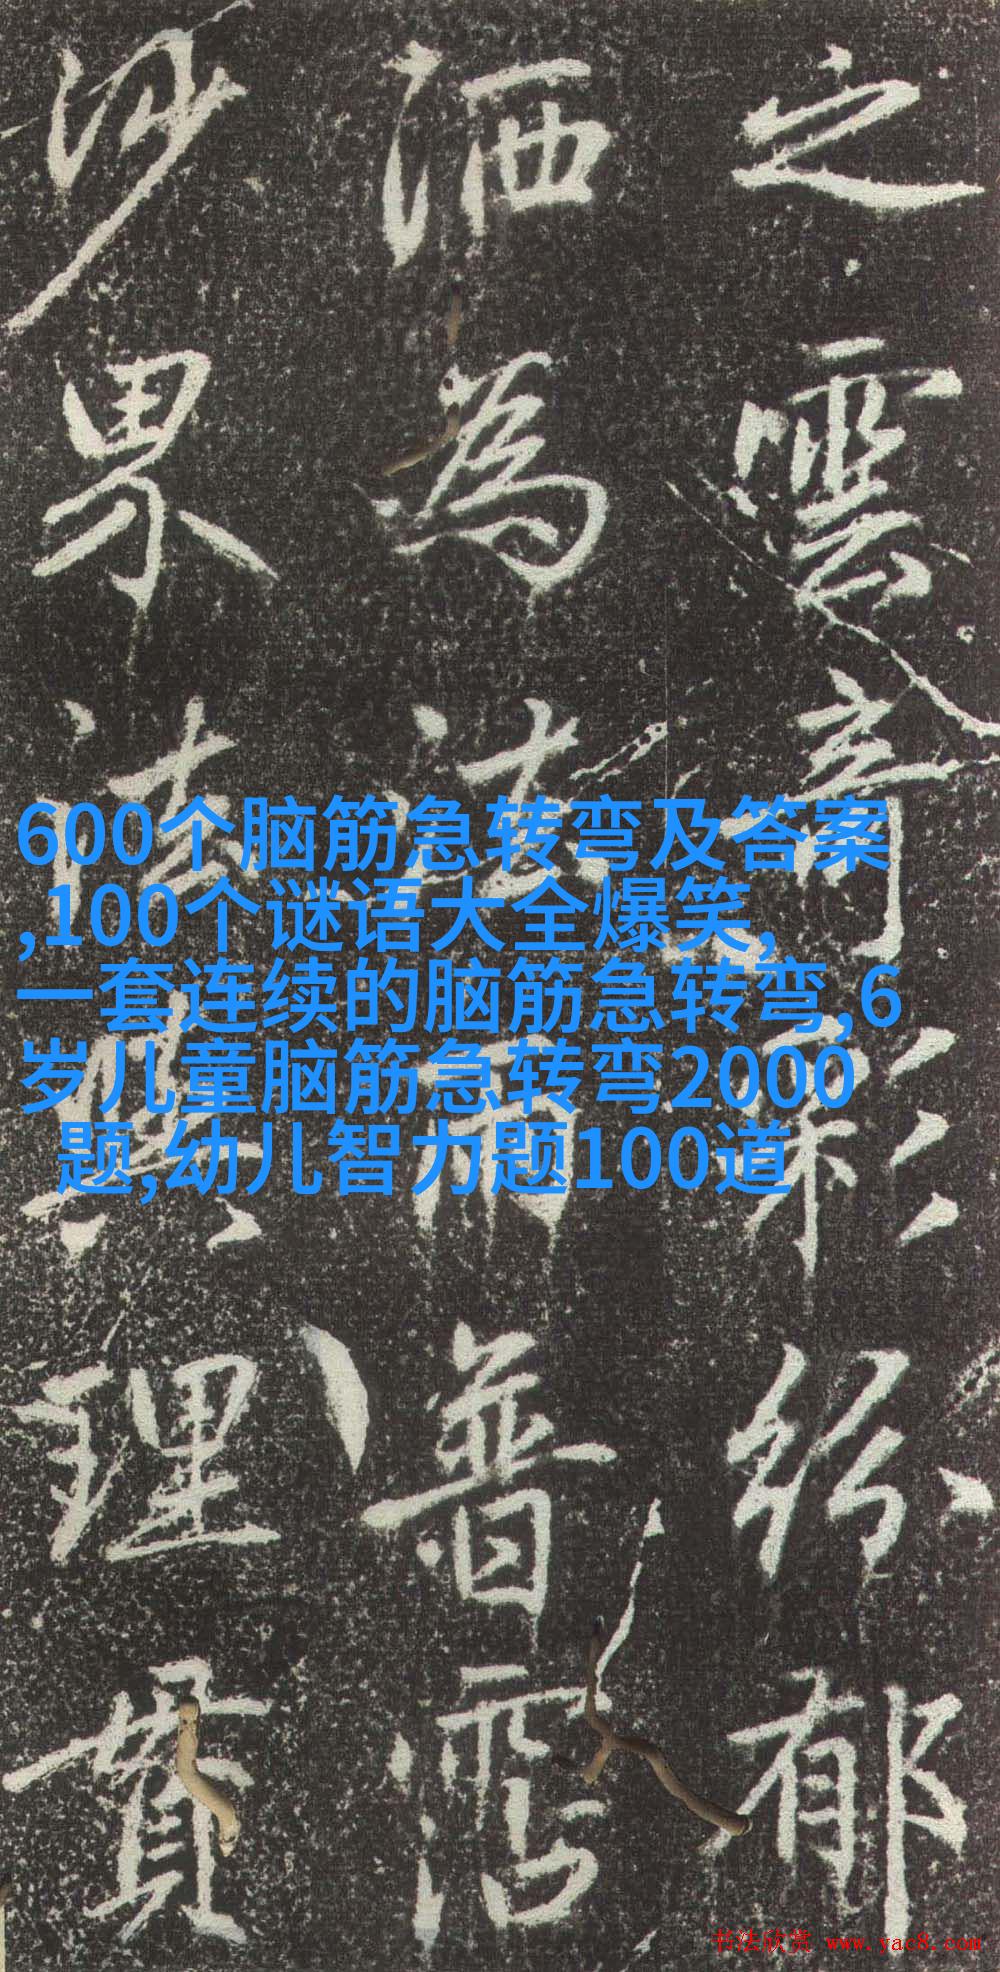 之雲奇彩紛郁
洒為法雨普霑
沙界與理貫
600个脑筋急转弯及答案
,100个谜语大全爆笑,
一套连续的脑筋急转弯,6
岁儿童脑筋急转弯2000
题,幼儿智力题100道
书法欣赏 www.yac8.com